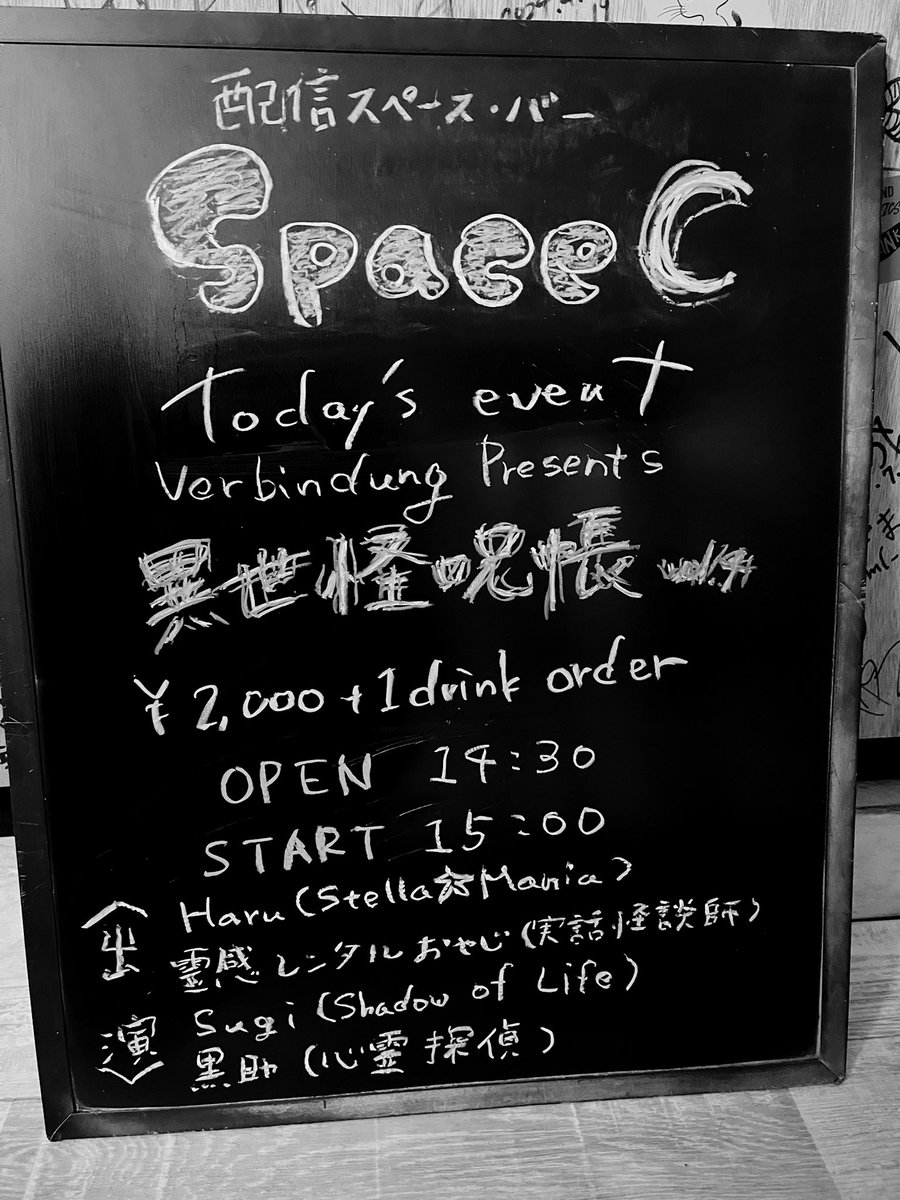 配信スペース・バー
Space C
Today's event
Verbindung Presents
異世怪呪帳
¥2,000+1drink order
OPEN 14:30
START 15:00
〈出演〉
Haru(Stella☆Mania)
霊感レンタルおやじ(実話怪談師)
Sugi(Shadow of Life)
黒助(心霊探偵)